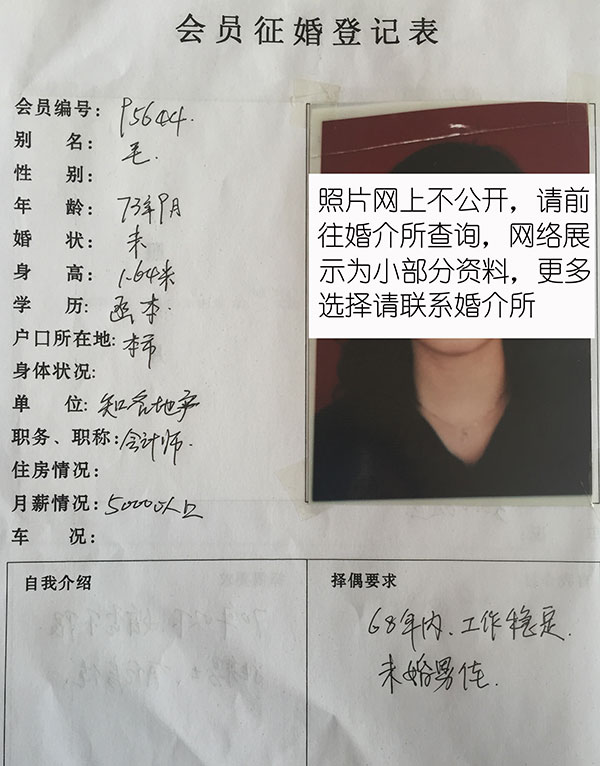 会员征婚登记表
会员编号: P5644.
别 名: 毛.
性 别:
年 龄: 73年9月
婚 状: 未
身 高: 1.64米
学 历: 函本.
户口所在地: 本市
身体状况:
单 位: 知名地产
职务、职称: 会计师.
住房情况:
月薪情况: 5000以上
车 况:
照片网上不公开，请前
往婚介所查询，网络展
示为小部分资料，更多
选择请联系婚介所
自我介绍
择偶要求
68年内、工作稳定.
未婚男佳.